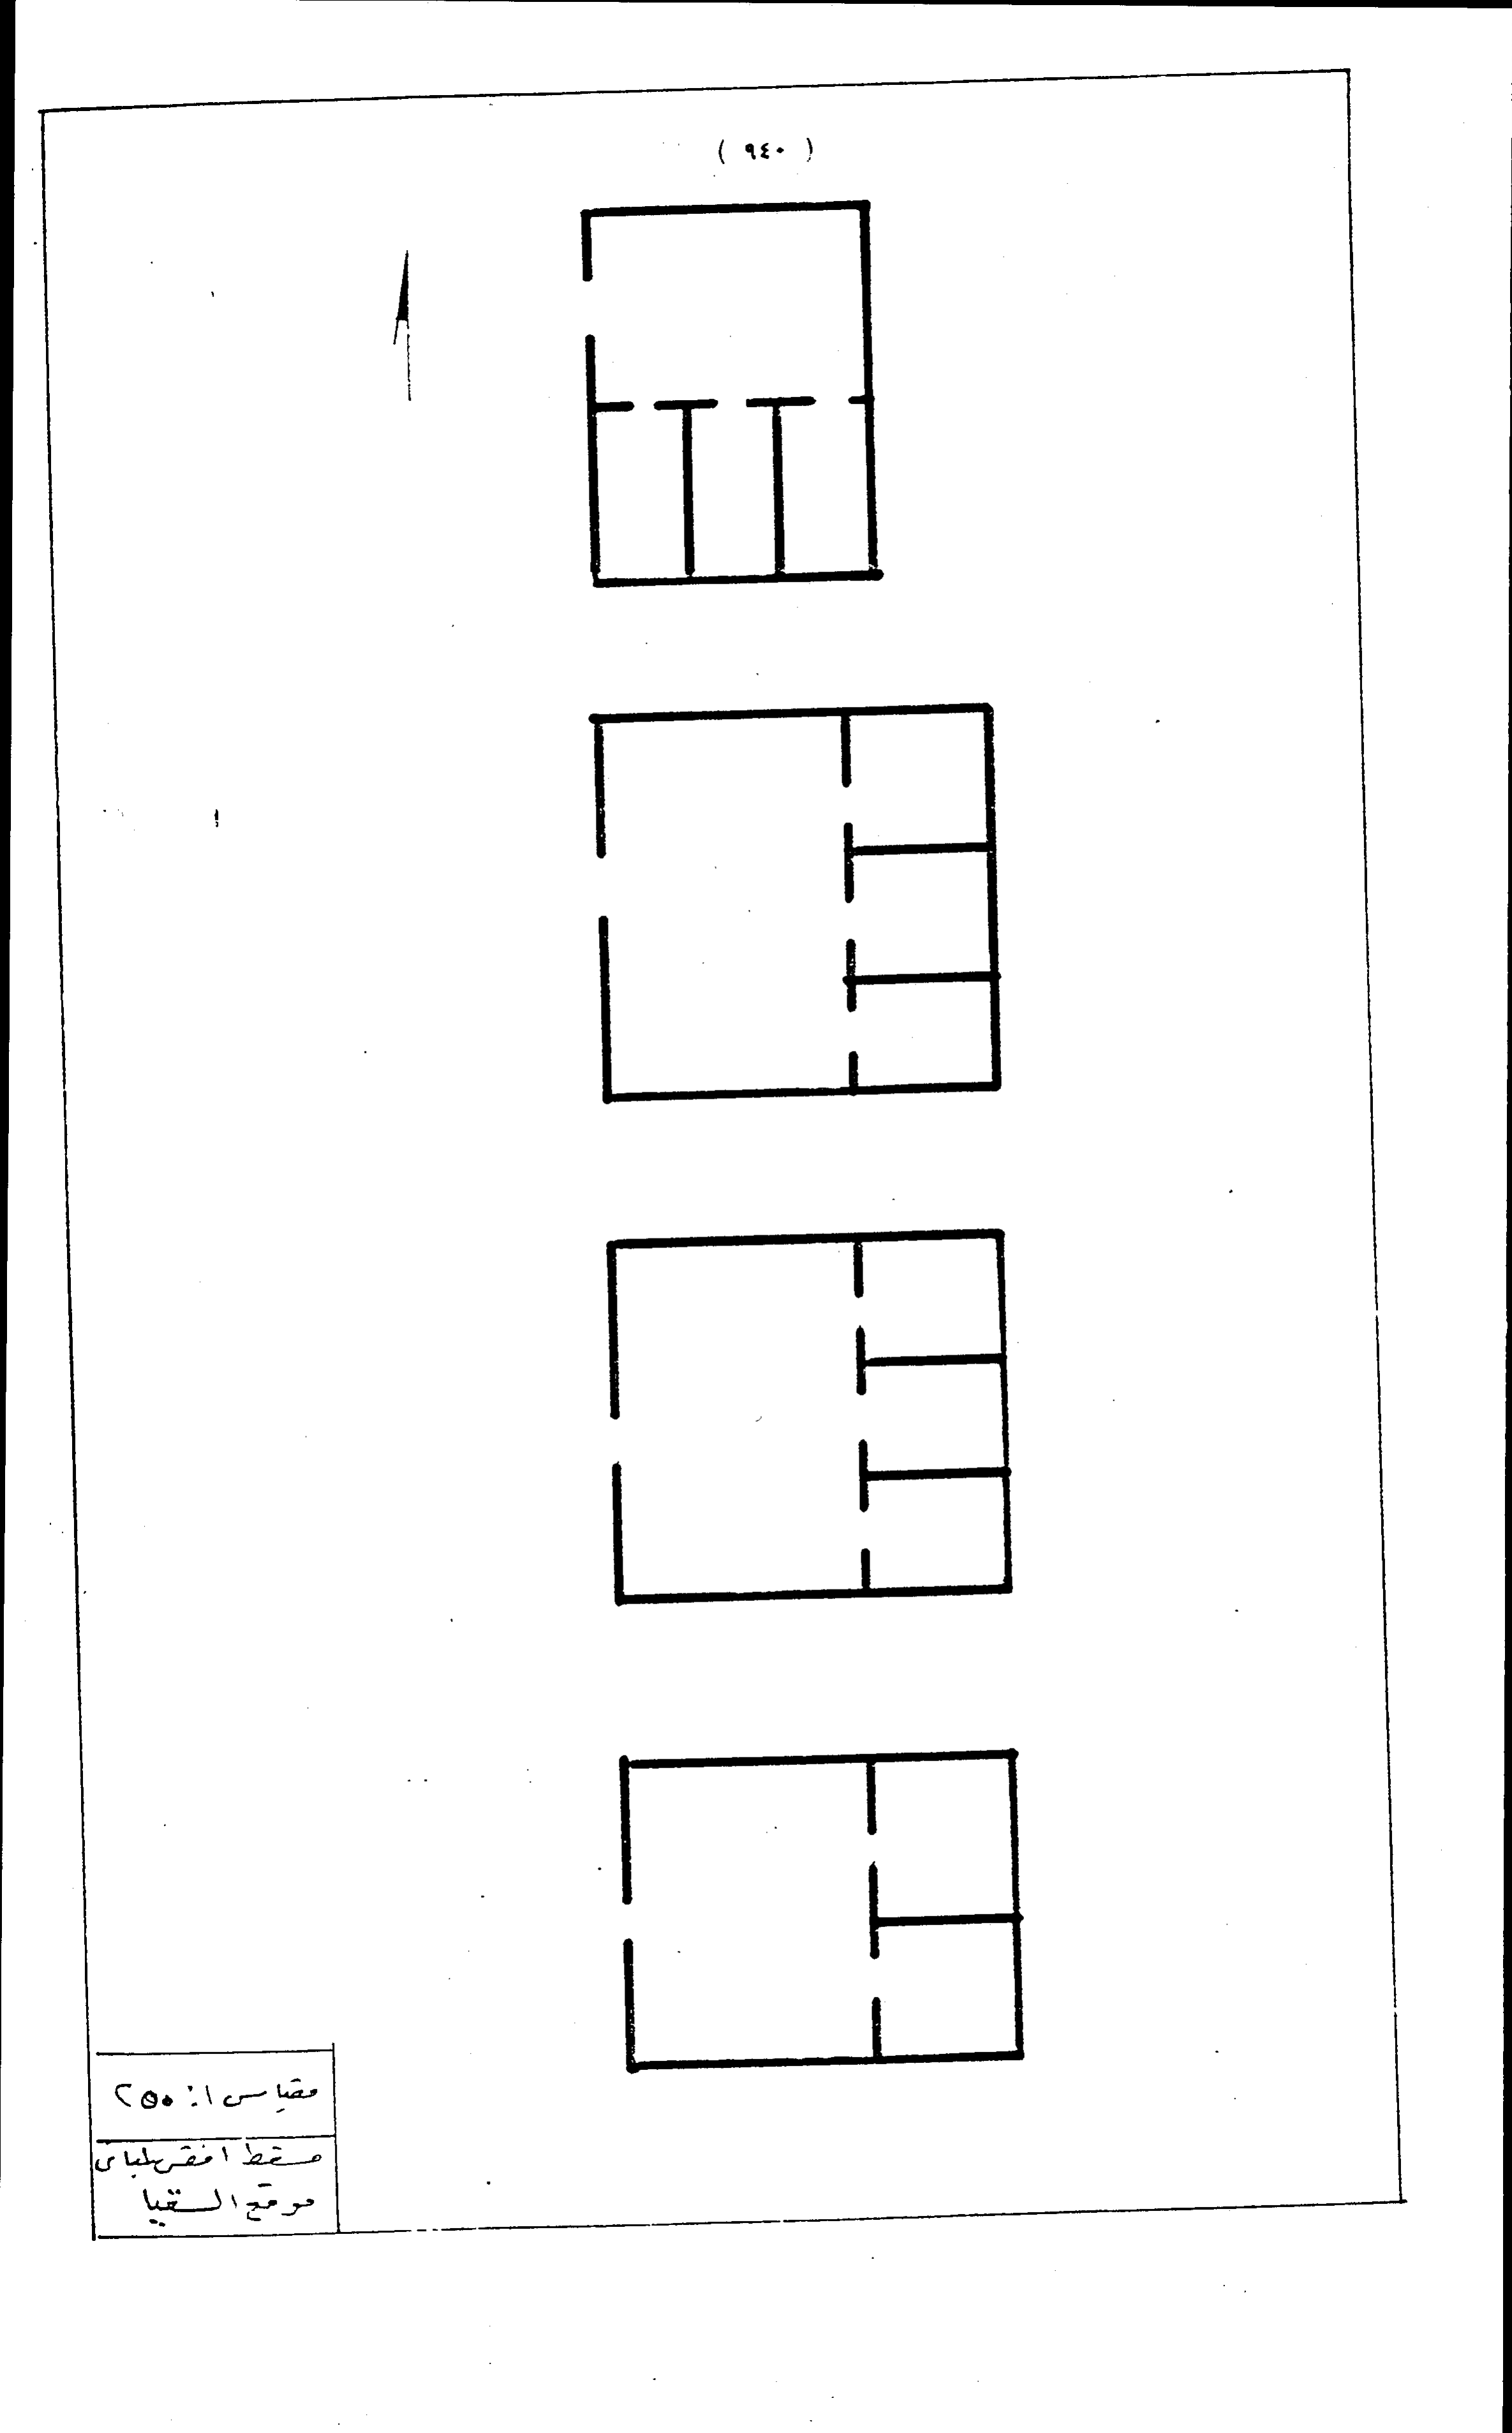 ( ٩٤٠ )
مقياس ١: ٢٥٠
مسقط افقى لمبانى
موقع السقيا